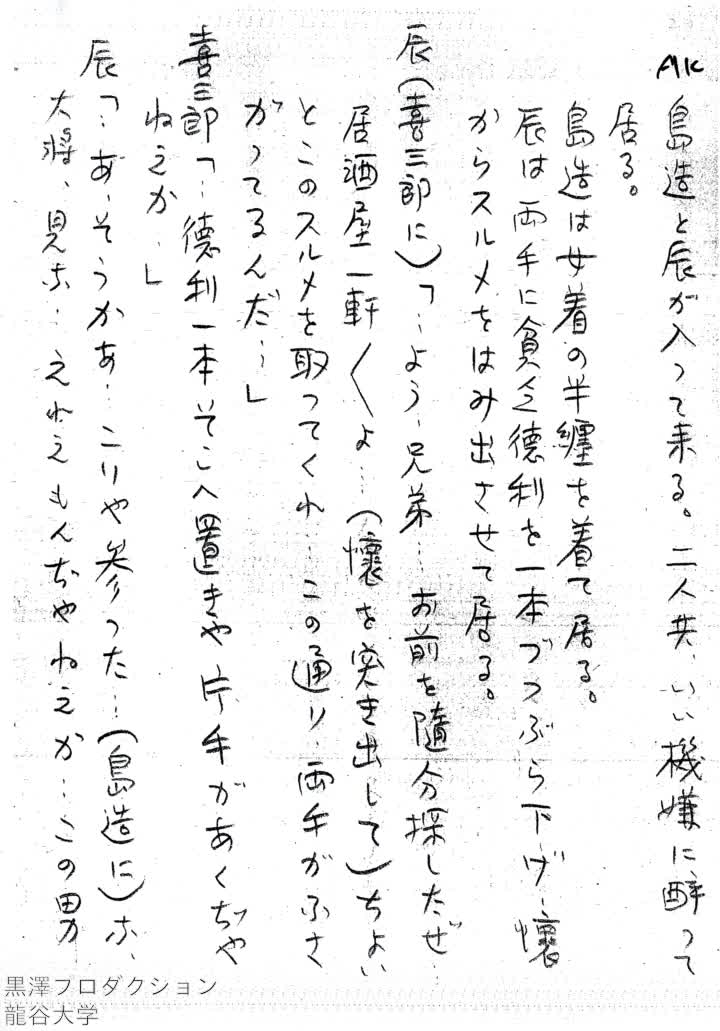 AK
島造と辰が入つて来る。二人共、いい機嫌に醉つて
居る。
島造は女着の半纏を着て居る。
辰は両手に貧乏徳利を一本づつぶら下げ、懐
からスルメをはみ出させて居る。
辰(喜三郎に)「‥よう、兄弟‥‥お前を随分探したぜ‥
居酒屋一軒〱よ‥‥(懐を突き出して)ちよい
とこのスルメを取つてくれ‥‥この通り、両手がふさ
がつてるんだ‥‥」
喜三郎「‥徳利一本そこへ置きや片手があくぢや
ねえか‥」
辰「‥あ、そうかあ‥‥こりや参つた‥‥(島造に)ホ、
大将、見ホ‥‥えれえもんぢやねえか‥‥この男
黒澤プロダクション
龍谷大学